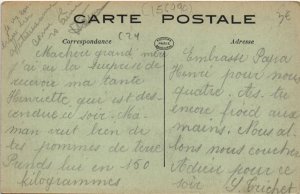 (156990)
3€
CARTE POSTALE
Correspondance
Adresse
C24
Ma chère grand mère
J'ai eu la surprise de
recevoir ma tante
Henriette, qui est des-
cendue ce soir. Ma-
man veut bien de
tes pommes de terre
Prends lui en 150
kilogrammes
Embrasse Papa
Henri pour nous
quatre. As-tu
encore froid aux
mains. Nous al-
lons nous coucher
Adieu pour ce
soir